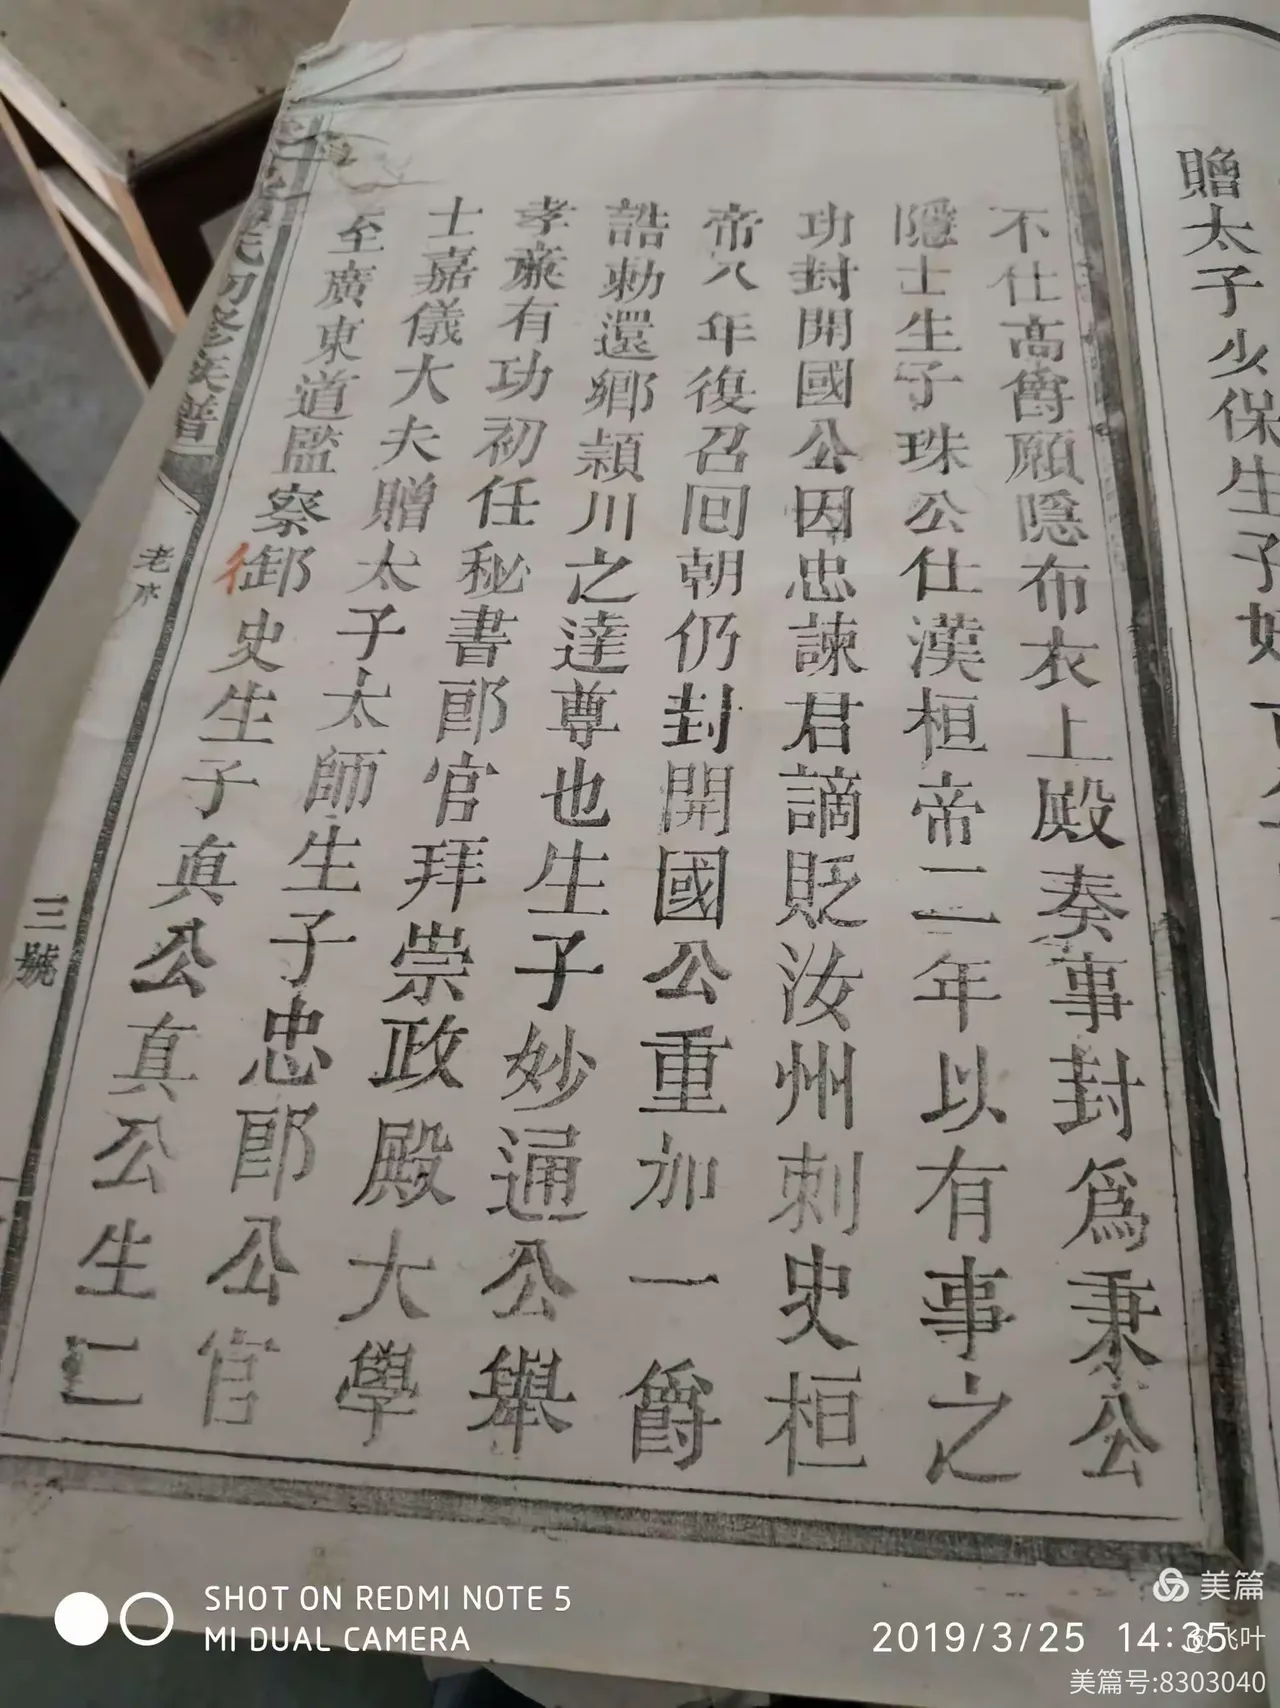 贈太子少保生子
不仕高爵願隱布衣上殿奏事封爲秉公
隱士生子珠公仕漢桓帝二年以有事之
功封開國公因忠諫君謫貶汝州刺史桓
帝八年復召囘朝仍封開國公重加一爵
誥勅還鄉頴川之達尊也生子妙通公舉
孝亷有功初任秘書郎官拜崇政殿大學
士嘉儀大夫贈太子太師生子忠郎公官
至廣東道監察御史生子真公真公生仁
氏初修族譜
老水
三號
SHOT ON REDMI NOTE 5
MI DUAL CAMERA
美篇
2019/3/25 14:35
@飞叶
美篇号:8303040